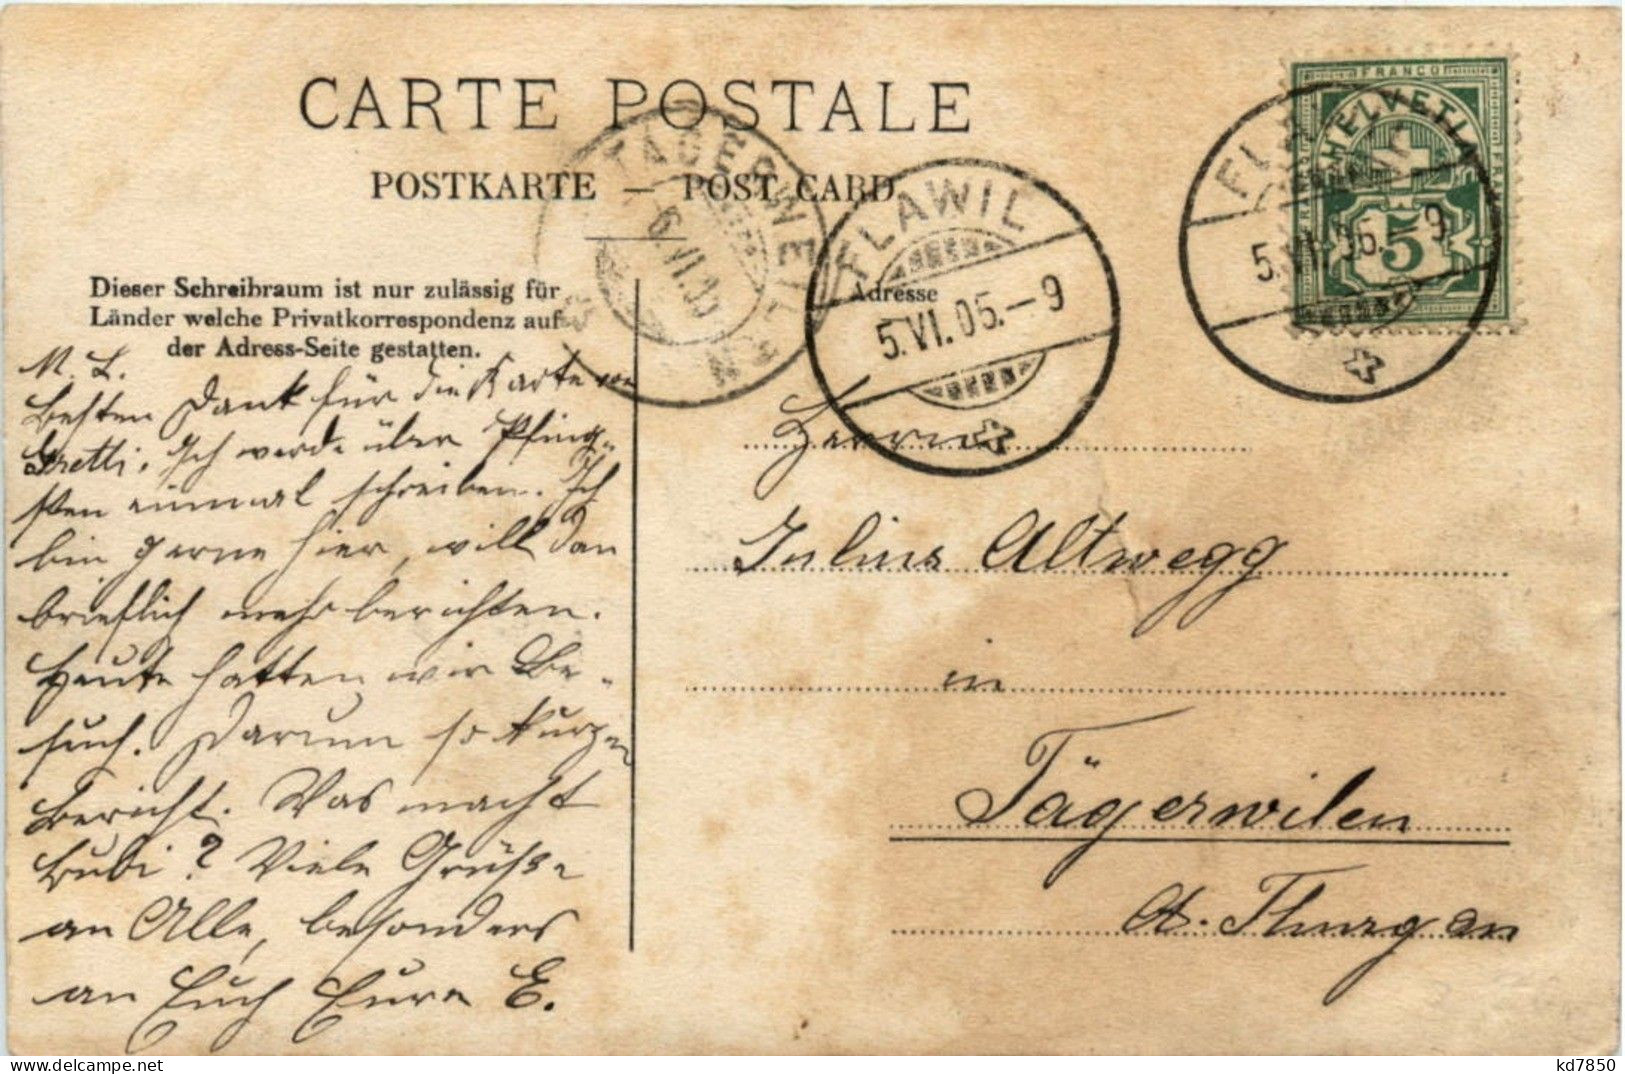 CARTE POSTALE
POSTKARTE — POST CARD
Dieser Schreibraum ist nur zulässig für
Länder welche Privatkorrespondenz auf
der Adress-Seite gestatten.
M. L.
Besten Dank für die Karte von
Gretti. Ich werde über Pfing-
sten einmal schreiben. Ich
bin gerne hier, will dan
brieflich mehr berichten.
Heute hatten wir Be-
such. Darum so kurzen
Bericht. Was macht
Bubi? Viele Grüsse
an Alle, besonders
an Euch Eure E.
TAEGERWEILEN
6.VI.05
FLAWIL
5.VI.05.-9
Adresse
FRANCO
HELVETIA
5
FL
5.VI.05.-9
Herrn
Julius Altwegg
in
Tägerwilen
Kt. Thurgau
delcampe.net
kd7850